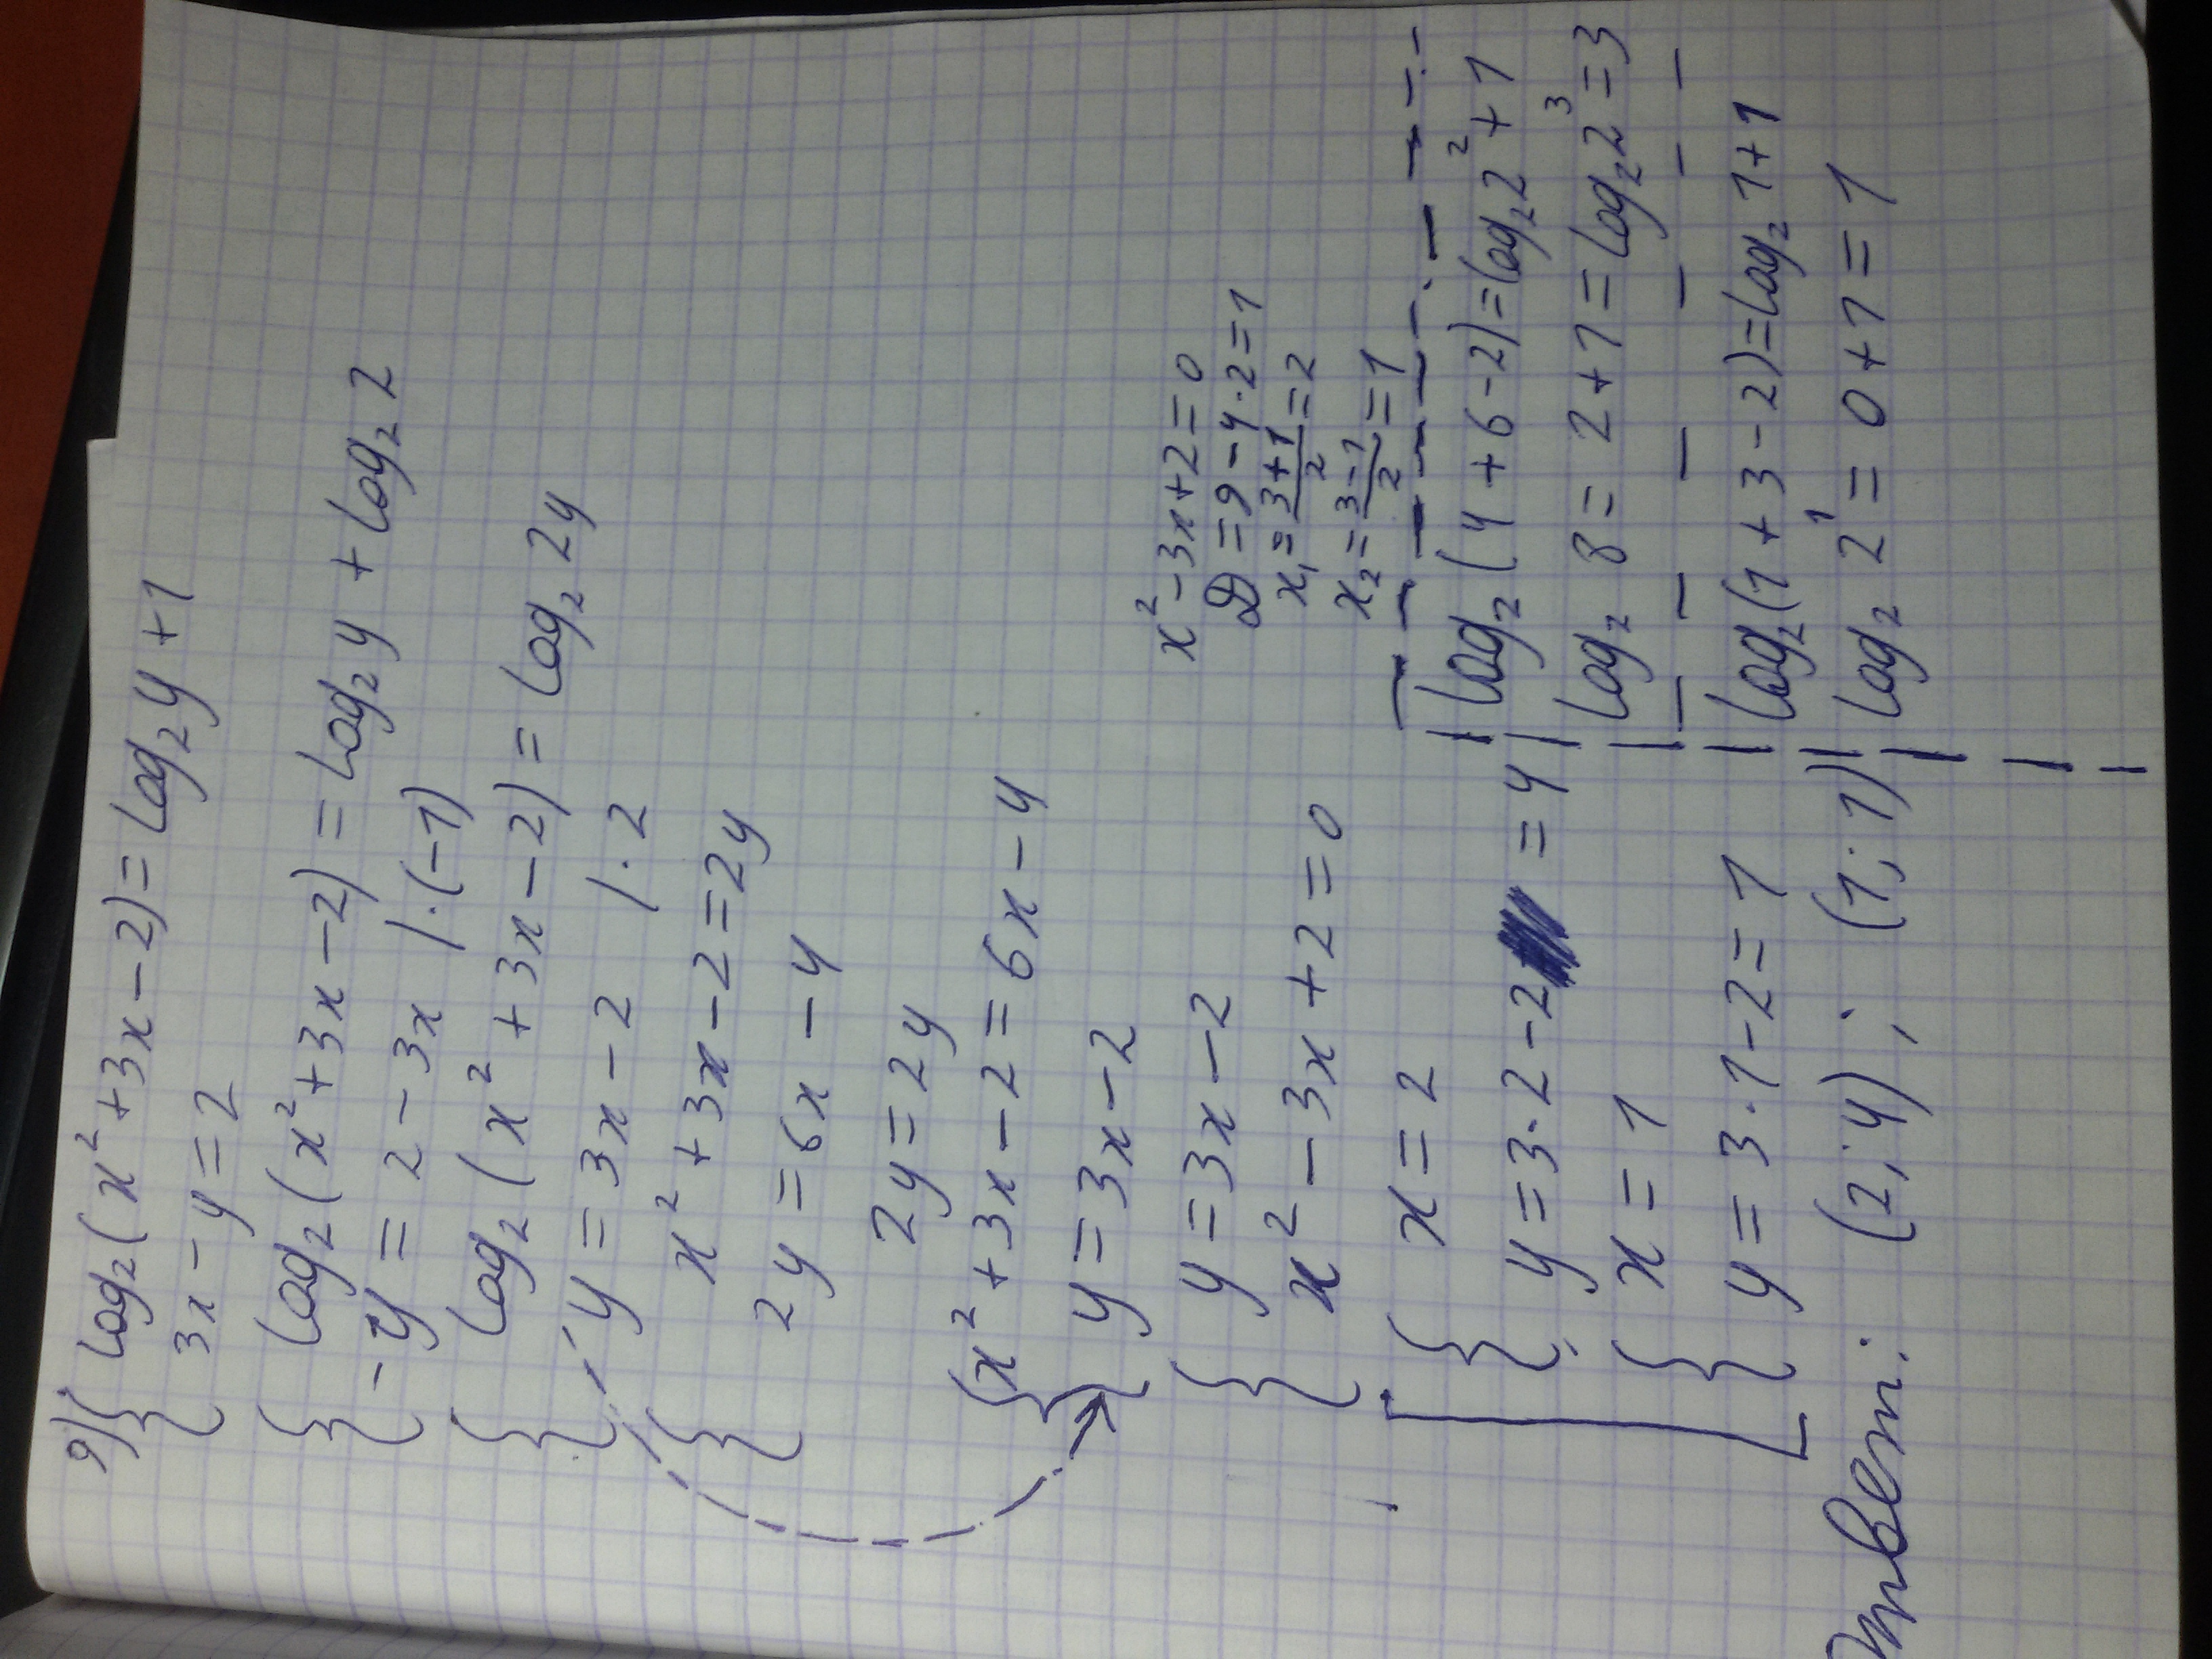 9) { log₂(x²+3x-2)=log₂y+1
3x-y=2
{ log₂(x²+3x-2)=log₂y+log₂2
-y=2-3x /·(-1)
{ log₂(x²+3x-2)=log₂2y
y=3x-2 /·2
{ x²+3x-2=2y
2y=6x-4
2y=2y
{ x²+3x-2=6x-4
y=3x-2
{ y=3x-2
x²-3x+2=0
x²-3x+2=0
D=9-4·2=1
x₁=(3+1)/2=2
x₂=(3-1)/2=1
[ { x=2
y=3·2-2=4
{ x=1
y=3·1-2=1
log₂(4+6-2)=log₂2²+1
log₂8=2+1=log₂2³=3
log₂(1+3-2)=log₂1+1
log₂2¹=0+1=1
Ответ: (2;4); (1;1)